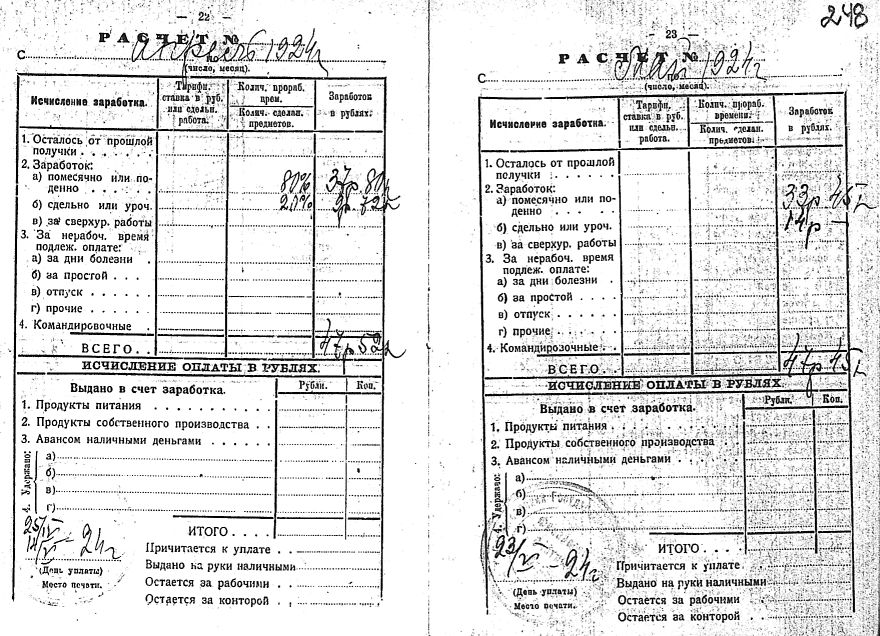 — 22 —
РАСЧЕТ №
С апрель 1924 г
(число, месяц).
Исчисление заработка.
Тарифн. ставка в руб. или сдельн. работа.
Колич. прораб. врем.
Колич. сделан. предметов.
Заработок в рублях.
1. Осталось от прошлой
получки
2. Заработок:
а) помесячно или по-
денно 80% 37р. 80к
б) сдельно или уроч. 9р. 72к
в) за сверхур. работы
3. За нерабоч. время
подлеж. оплате:
а) за дни болезни
б) за простой
в) отпуск
г) прочие
4. Командировочные
ВСЕГО 47р 52к
ИСЧИСЛЕНИЕ ОПЛАТЫ В РУБЛЯХ.
Выдано в счет заработка. Рубли. Коп.
1. Продукты питания
2. Продукты собственного производства
3. Авансом наличными деньгами
4. Удержано:
а)
б)
в)
г)
25/IV
14/V - 24 г
ИТОГО
Причитается к уплате
Выдано на руки наличными
(День уплаты)
Место печати.
Остается за рабочими
Остается за конторой
248
— 23 —
РАСЧЕТ №
С май 1924 г
(число, месяц).
Исчисление заработка.
Тарифн. ставка в руб. или сдельн. работа.
Колич. прораб. времени.
Колич. сделан. предметов.
Заработок в рублях.
1. Осталось от прошлой
получки
2. Заработок:
а) помесячно или по-
денно 33р 45к
б) сдельно или уроч. 14р —
в) за сверхур. работы
3. За нерабоч. время
подлеж. оплате:
а) за дни болезни
б) за простой
в) отпуск
г) прочие
4. Командировочные
ВСЕГО 47р 45к
ИСЧИСЛЕНИЕ ОПЛАТЫ В РУБЛЯХ.
Выдано в счет заработка. Рубли. Коп.
1. Продукты питания
2. Продукты собственного производства
3. Авансом наличными деньгами
4. Удержано:
а)
б)
в)
г)
23/V - 24 г
ИТОГО
Причитается к уплате
Выдано на руки наличными
(День уплаты)
Место печати.
Остается за рабочими
Остается за конторой